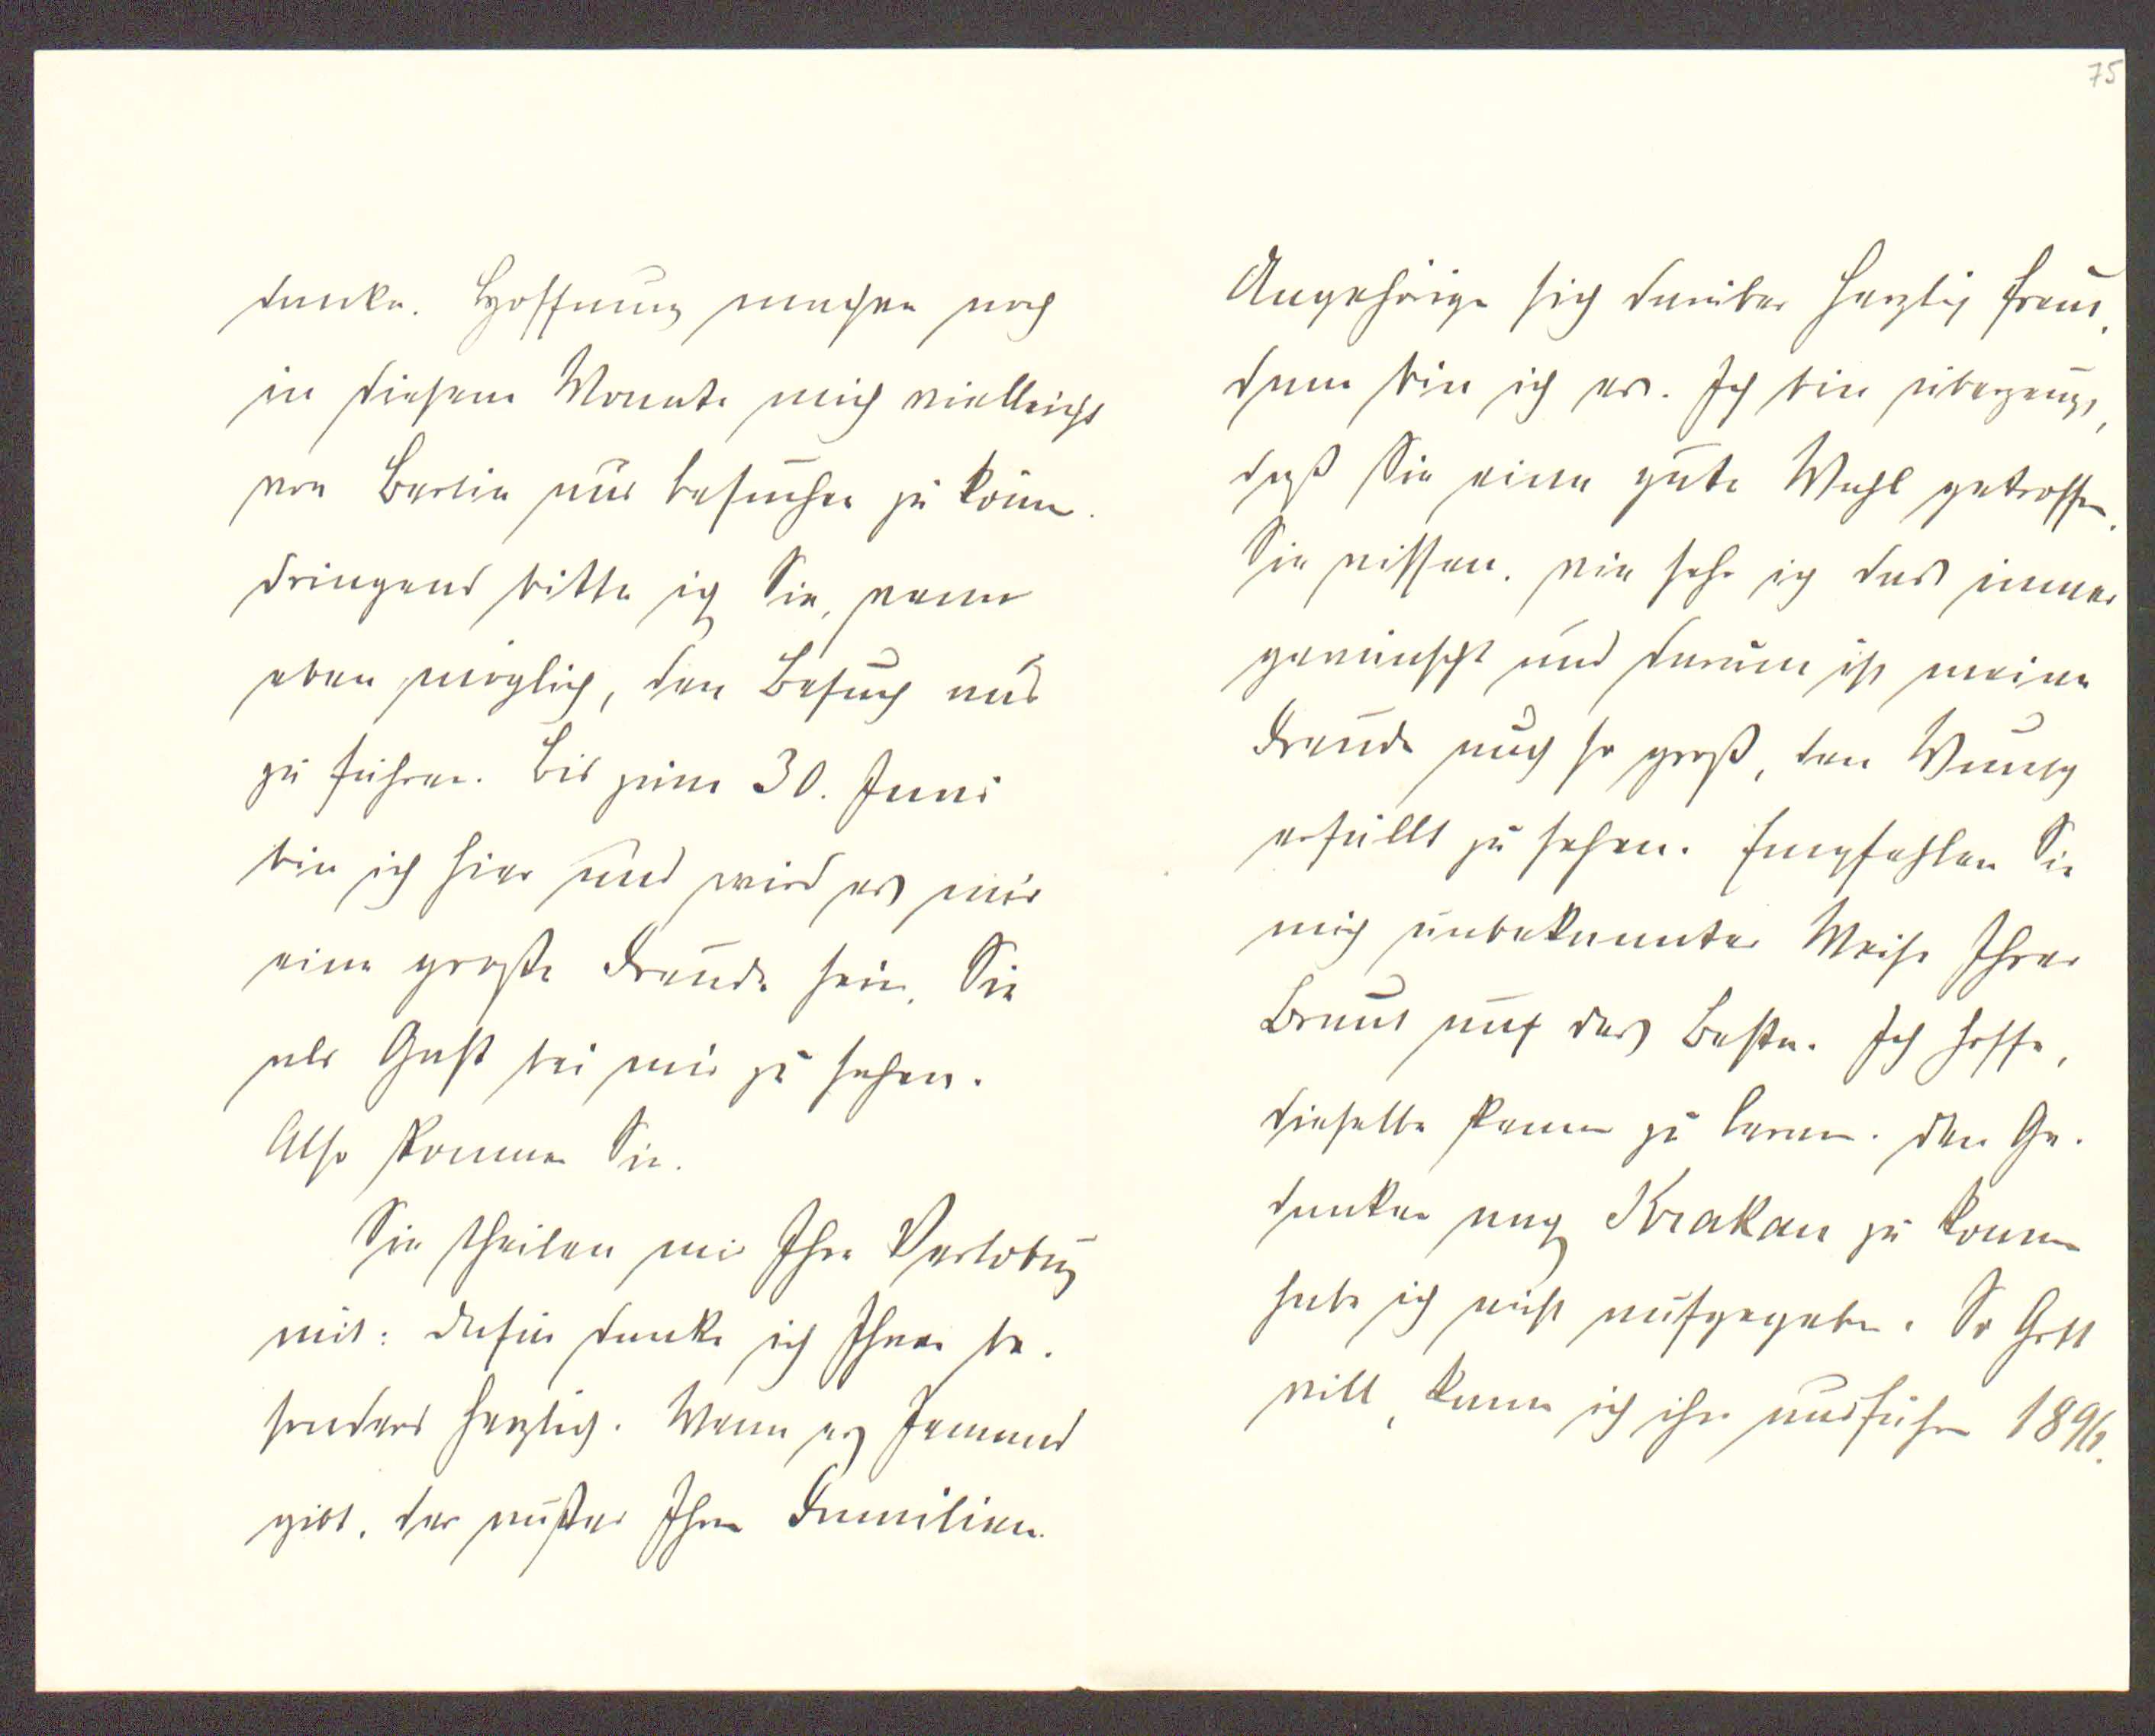 danke. Hoffnung machen noch
in diesem Monate mich vielleicht
von Berlin aus besuchen zu könn.
dringend bitte ich Sie, wenn
eben möglich, den Besuch aus
zu führen. Bis zum 30. Juni
bin ich hier und wird es mir
eine große Freude sein, Sie
als Gast bei mir zu sehen.
Also kommen Sie.
Sie theilen mir Ihre Verlobung
mit: dafür danke ich Ihnen be-
sonders herzlich. Wenn es Jemand
gibt, der außer Ihren Familien-
75
Angehörige sich darüber herzlich freut,
dann bin ich es. Ich bin überzeugt,
daß Sie eine gute Wahl getroffen.
Sie wissen, wie sehr ich das immer
gewünscht und darum ist meine
Freude auch so groß, den Wunsch
erfüllt zu sehen. Empfehlen Sie
mich unbekannter Weise Ihrer
Braut auf das Beste. Ich hoffe,
dieselbe kennen zu lernen. Den Ge-
danken nach Krakau zu kommen
habe ich nicht aufgegeben. So Gott
will, kann ich ihn ausführen 1896.